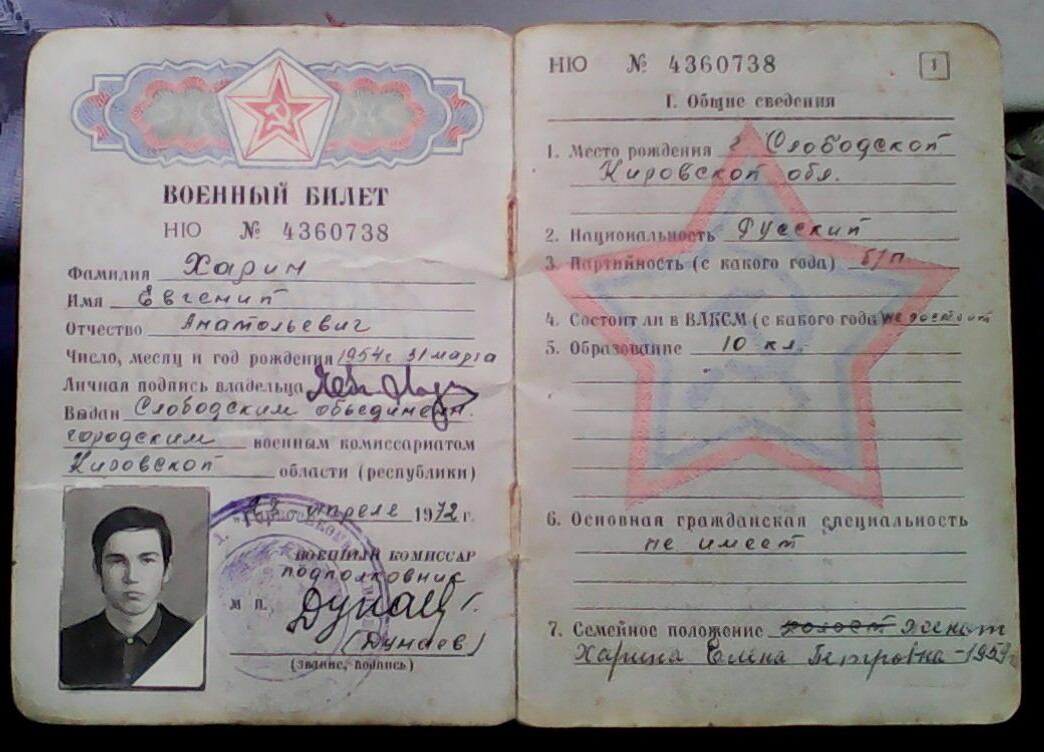 ВОЕННЫЙ БИЛЕТ
НЮ № 4360738
Фамилия Харин
Имя Евгений
Отчество Анатольевич
Число, месяц и год рождения 1954 г 31 марта
Личная подпись владельца
Выдан Слободским объединен.
городским военным комиссариатом
Кировской области (республики)
апреля 1972 г.
ВОЕННЫЙ КОМИССАР
подполковник
М П.
(Дунаев)
(звание, подпись)
НЮ № 4360738
1
I. Общие сведения
1. Место рождения г Слободской
Кировской обл.
2. Национальность Русский
3. Партийность (с какого года) б/п
4. Состоит ли в ВЛКСМ (с какого года не состоит
5. Образование 10 кл.
6. Основная гражданская специальность
не имеет
7. Семейное положение холост женат
Харина Елена Петровна - 1959г